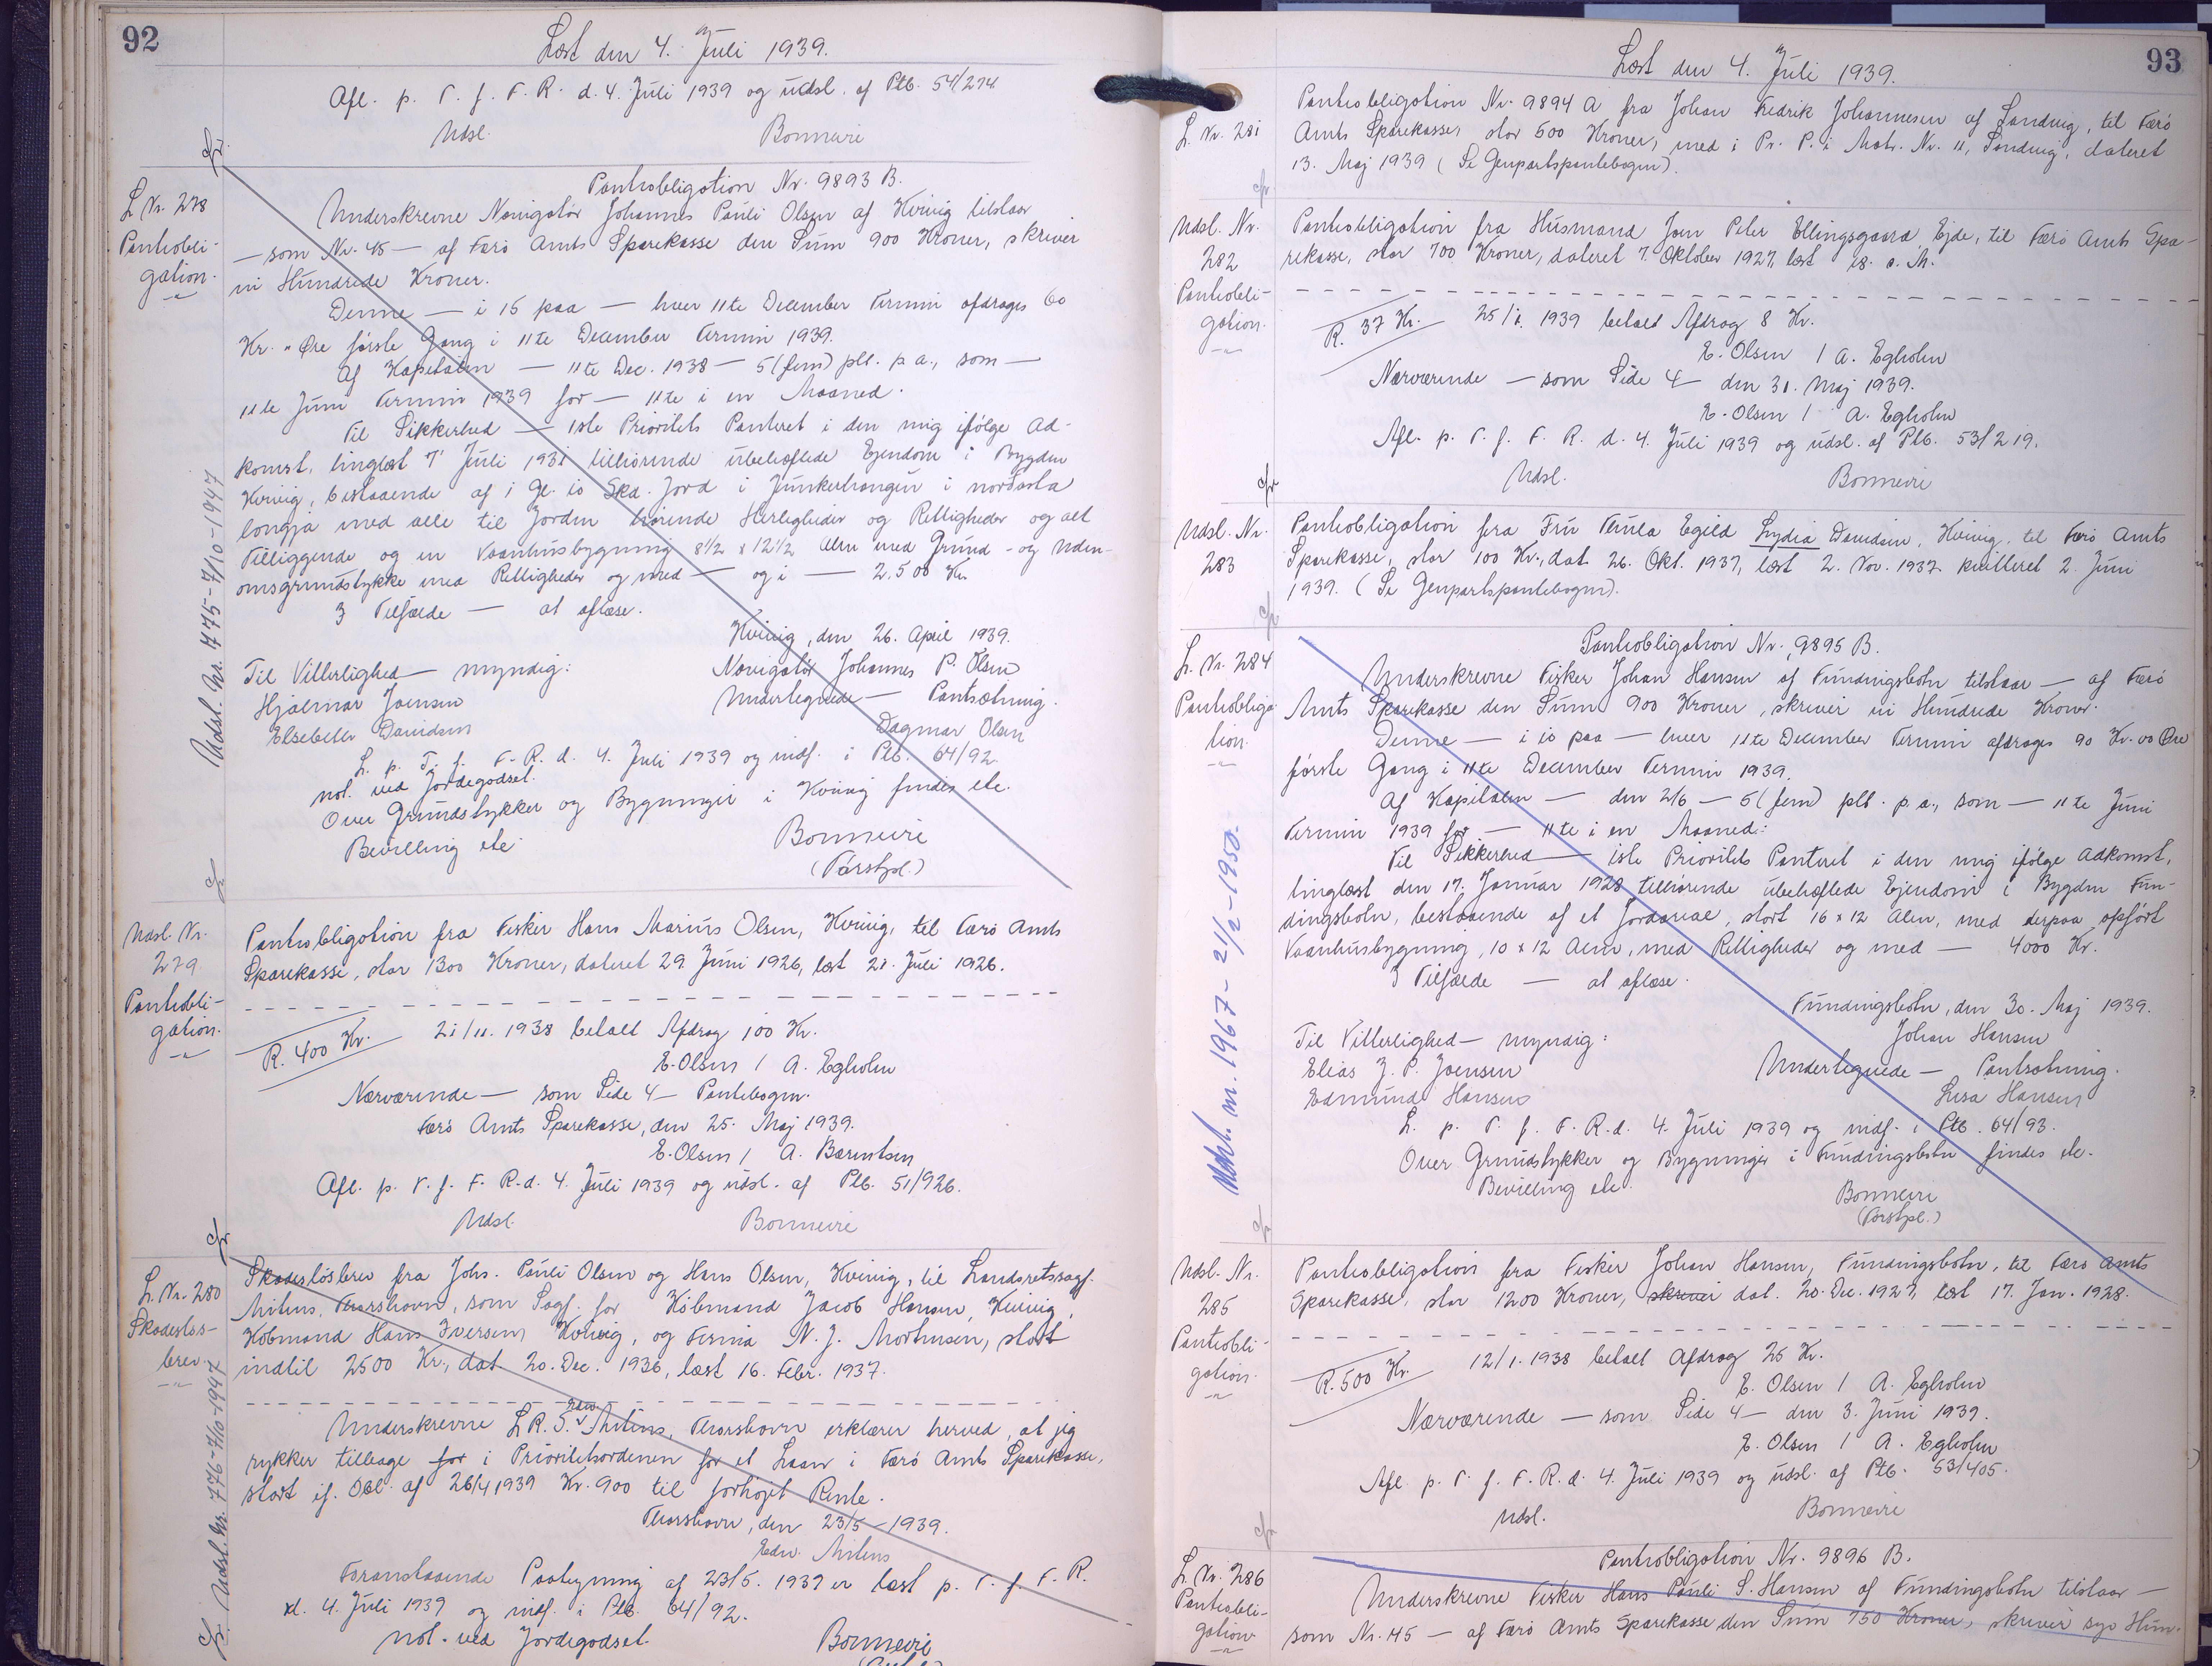 92
Læst den 4. Juli 1939.
Afl. p. T. f. F. R. d. 4. Juli 1939 og udsl. af Ptb. 54/274
Udsl. Bonnevie
L. Nr. 278
Pantobli-
gation.
Pantobligation Nr. 9893 B.
Underskrevne Navigatör Johannes Pauli Olsen af Kvivig tilstaar
— som Nr. 45 — af Færö Amts Sparekasse den Sum 900 Kroner, skriver
ni Hundrede Kroner.
Denne — i 15 paa — hver 11te December Termin afdrages 60
Kr. " Øre förste Gang i 11te December Termin 1939.
Af Kapitalen — 11te Dec. 1938 — 5 (fem) pCt. p. a., som —
11te Juni Termin 1939 for — 11te i en Maaned.
Til Sikkerhed — 1ste Prioritets Panteret i den mig ifölge Ad-
komst, tinglæst 7' Juli 1931 tilhörende ubehæftede Ejendom i Bygden
Kvivig, bestaaende af 1 Gl. 10 Skd. Jord i Junkerhangur i norðasta
longja med alle til Jorden hörende Herligheder og Rettigheder og alt
Tilliggende og en Vaanhusbygning 8½ x 12½ Alen med Grund- og Uden-
omsgrundstykke med Rettigheder og med — og i — 2.500 Kr.
I Tilfælde — at aflæse.
Kvivig, den 26. April 1939.
Til Vitterlighed — myndig: Navigatör Johannes P. Olsen
Hjalmar Joensen Undertegnede — Pantsætning.
Elsebeth Davidsen Dagmar Olsen
L. p. T. f. F. R. d. 4. Juli 1939 og indf. i Ptb. 64/92.
not. ved Jordegodset.
Over Grundstykker og Bygninger i Kvivig findes ete.
Bevilling ete Bonnevie
(Torstpl.)
Udsl. Nr. 775-7/10-1947
Udsl. Nr.
279
Pantobli-
gation.
Pantobligation fra Fisker Hans Marius Olsen, Kvivig, til Færö Amts
Sparekasse, stor 1300 Kroner, dateret 29. Juni 1926, læst 21. Juli 1926.
R. 400 Kr. 21/11. 1938 betalt Afdrag 100 Kr.
E. Olsen / A. Egholm
Nærværende — som Side 4 — Pantebogen.
Færö Amts Sparekasse, den 25. Maj 1939.
E. Olsen / A. Bærentsen
Afl. p. T. f. F. R. d. 4. Juli 1939 og udsl. af Ptb. 51/926.
Udsl. Bonnevie
L. Nr. 280
Skadeslös-
brev.
Skadeslösbrev fra Johs. Pauli Olsen og Hans Olsen, Kvivig, til Landsretssagf.
Mitens, Thorshavn, som Sagf. for Köbmand Jacob Hansen, Kvivig,
Köbmand Hans Iversen, Kvivig, og Firma N. J. Mortensen, stort
indtil 2500 Kr., dat. 20. Dec. 1936, læst 16. Febr. 1937.
Underskrevne L.R.S. Edw. Mitens, Thorshavn erklærer herved, at jeg
rykker tilbage for i Prioritetsordenen for et Laan i Færö Amts Sparekasse,
stort if. Obl. af 26/4 1939 Kr. 900 til forhöjet Rente.
Thorshavn, den 23/5 - 1939.
Edw. Mitens
Foranstaaende Paategning af 23/5. 1939 er læst p. T. f. F. R.
d. 4. Juli 1939 og indf. i Ptb. 64/92.
not. ved Jordegodset. Bonnevie
Udsl. Nr. 776-7/10-1947
93
Læst den 4. Juli 1939.
L. Nr. 281
Pantobligation Nr. 9894 A fra Johan Fredrik Johannesen af Sandvig, til Færö
Amts Sparekasse, stor 600 Kroner, med i Pr. P. i Matr. Nr. 11, Sandvig, dateret
13. Maj 1939 (Se Genpartspantebogen).
Udsl. Nr.
282
Pantobli-
gation.
Pantobligation fra Husmand Joen Peter Ellingsgaard, Ejde, til Færö Amts Spa-
rekasse, stor 700 Kroner, dateret 7. Oktober 1927, læst 18. s. M.
R. 37 Kr. 25/1. 1939 betalt Afdrag 8 Kr.
E. Olsen / A. Egholm
Nærværende — som Side 4 — den 31. Maj 1939.
E. Olsen / A. Egholm
Afl. p. T. f. F. R. d. 4. Juli 1939 og udsl. af Ptb. 53/219.
Udsl. Bonnevie
Udsl. Nr.
283
Pantobligation fra Fru Thula Egild Lydia Davidsen, Kvivig, til Færö Amts
Sparekasse, stor 100 Kr., dat. 26. Okt. 1937, læst 2. Nov. 1937. kvitteret 2. Juni
1939. (Se Genpartspantebogen).
L. Nr. 284
Pantobliga-
tion.
Pantobligation Nr. 9895 B.
Underskrevne Fisker Johan Hansen af Fundingsbotn tilstaar — af Færö
Amts Sparekasse den Sum 900 Kroner, skriver ni Hundrede Kroner.
Denne — i 10 paa — hver 11te December Termin afdrages 90 Kr. 00 Øre
förste Gang i 11te December Termin 1939.
Af Kapitalen — den 2/6 — 5 (fem) pCt. p. a., som — 11te Juni
Termin 1939 for — 11te i en Maaned.
Til Sikkerhed — 1ste Prioritets Panteret i den mig ifölge Adkomst,
tinglæst den 17. Januar 1928 tilhörende ubehæftede Ejendom i Bygden Fun-
dingsbotn, bestaaende af et Jordareal, stort 16 x 12 Alen, med derpaa opfört
Vaanhusbygning, 10 x 12 Alen, med Rettigheder og med — 4000 Kr.
I Tilfælde — at aflæse.
Fundingsbotn, den 30. Maj 1939.
Til Vitterlighed — myndig: Johan Hansen
Elias J. P. Joensen Undertegnede — Pantsætning.
Edmund Hansen Lusa Hansen
L. p. T. f. F. R. d. 4. Juli 1939 og indf. i Ptb. 64/93.
Over Grundstykker og Bygninger i Fundingsbotn findes ete.
Bevilling ete. Bonnevie
(Torstpl.)
Udsl. nr. 1967 - 21/2 - 1950.
Udsl. Nr.
285
Pantobli-
gation.
Pantobligation fra Fisker Johan Hansen, Fundingsbotn, til Færö Amts
Sparekasse, stor 1200 Kroner, skriver dat. 20. Dec. 1927, læst 17. Jan. 1928.
R. 500 Kr. 12/1. 1938 betalt Afdrag 25 Kr.
E. Olsen / A. Egholm
Nærværende — som Side 4 — den 3. Juni 1939.
E. Olsen / A. Egholm
Afl. p. T. f. F. R. d. 4. Juli 1939 og udsl. af Ptb. 53/405.
Udsl. Bonnevie
L. Nr. 286
Pantobli-
gation
Pantobligation Nr. 9896 B.
Underskrevne Fisker Hans Pauli S. Hansen af Fundingsbotn tilstaar —
som Nr. 45 — af Færö Amts Sparekasse den Sum 750 Kroner, skriver syv Hun-